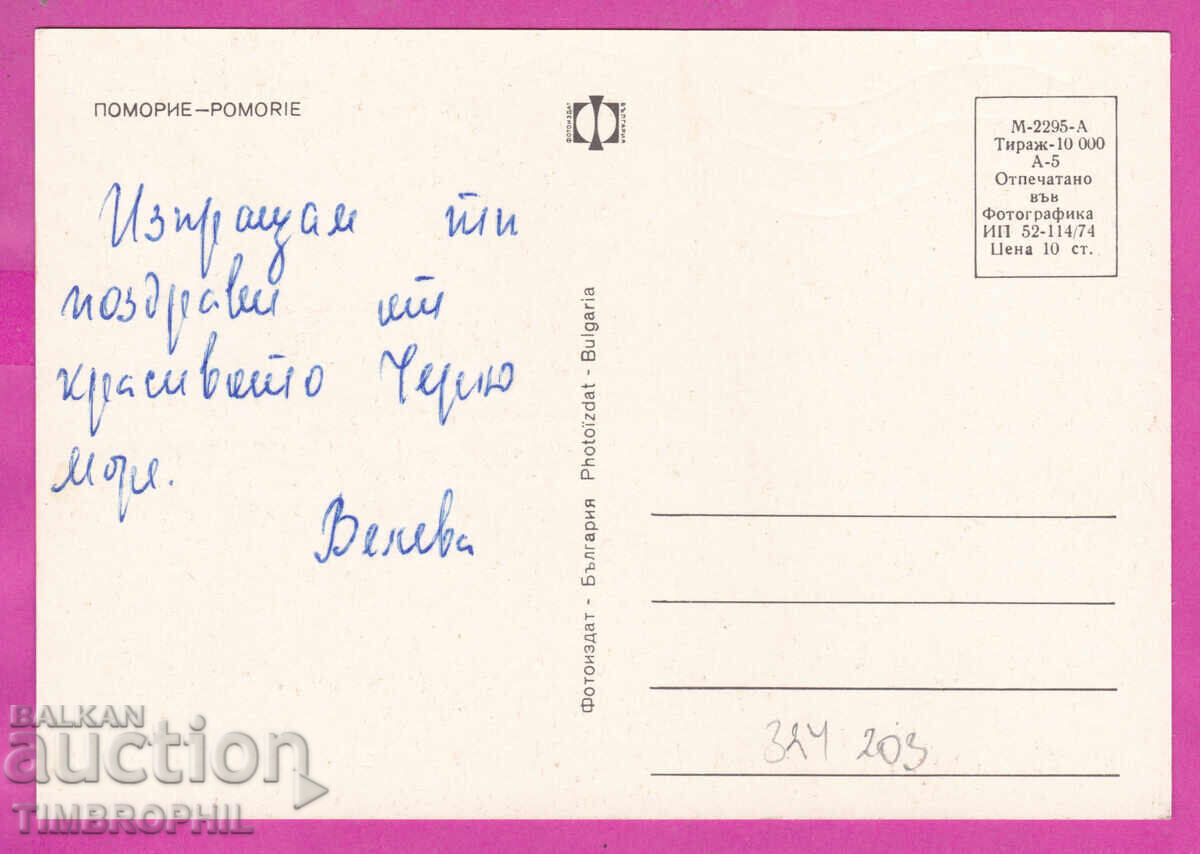 ПОМОРИЕ—POMORIE
ФОТОИЗДАТ
БЪЛГАРИЯ
М-2295-А
Тираж-10 000
А-5
Отпечатано
във
Фотографика
ИП 52-114/74
Цена 10 ст.
Изпращам ти
поздрави от
красивото Черно
море.
Велева
Фотоиздат - България Photoïzdat - Bulgaria
324 203
BALKAN
auction
TIMBROPHIL